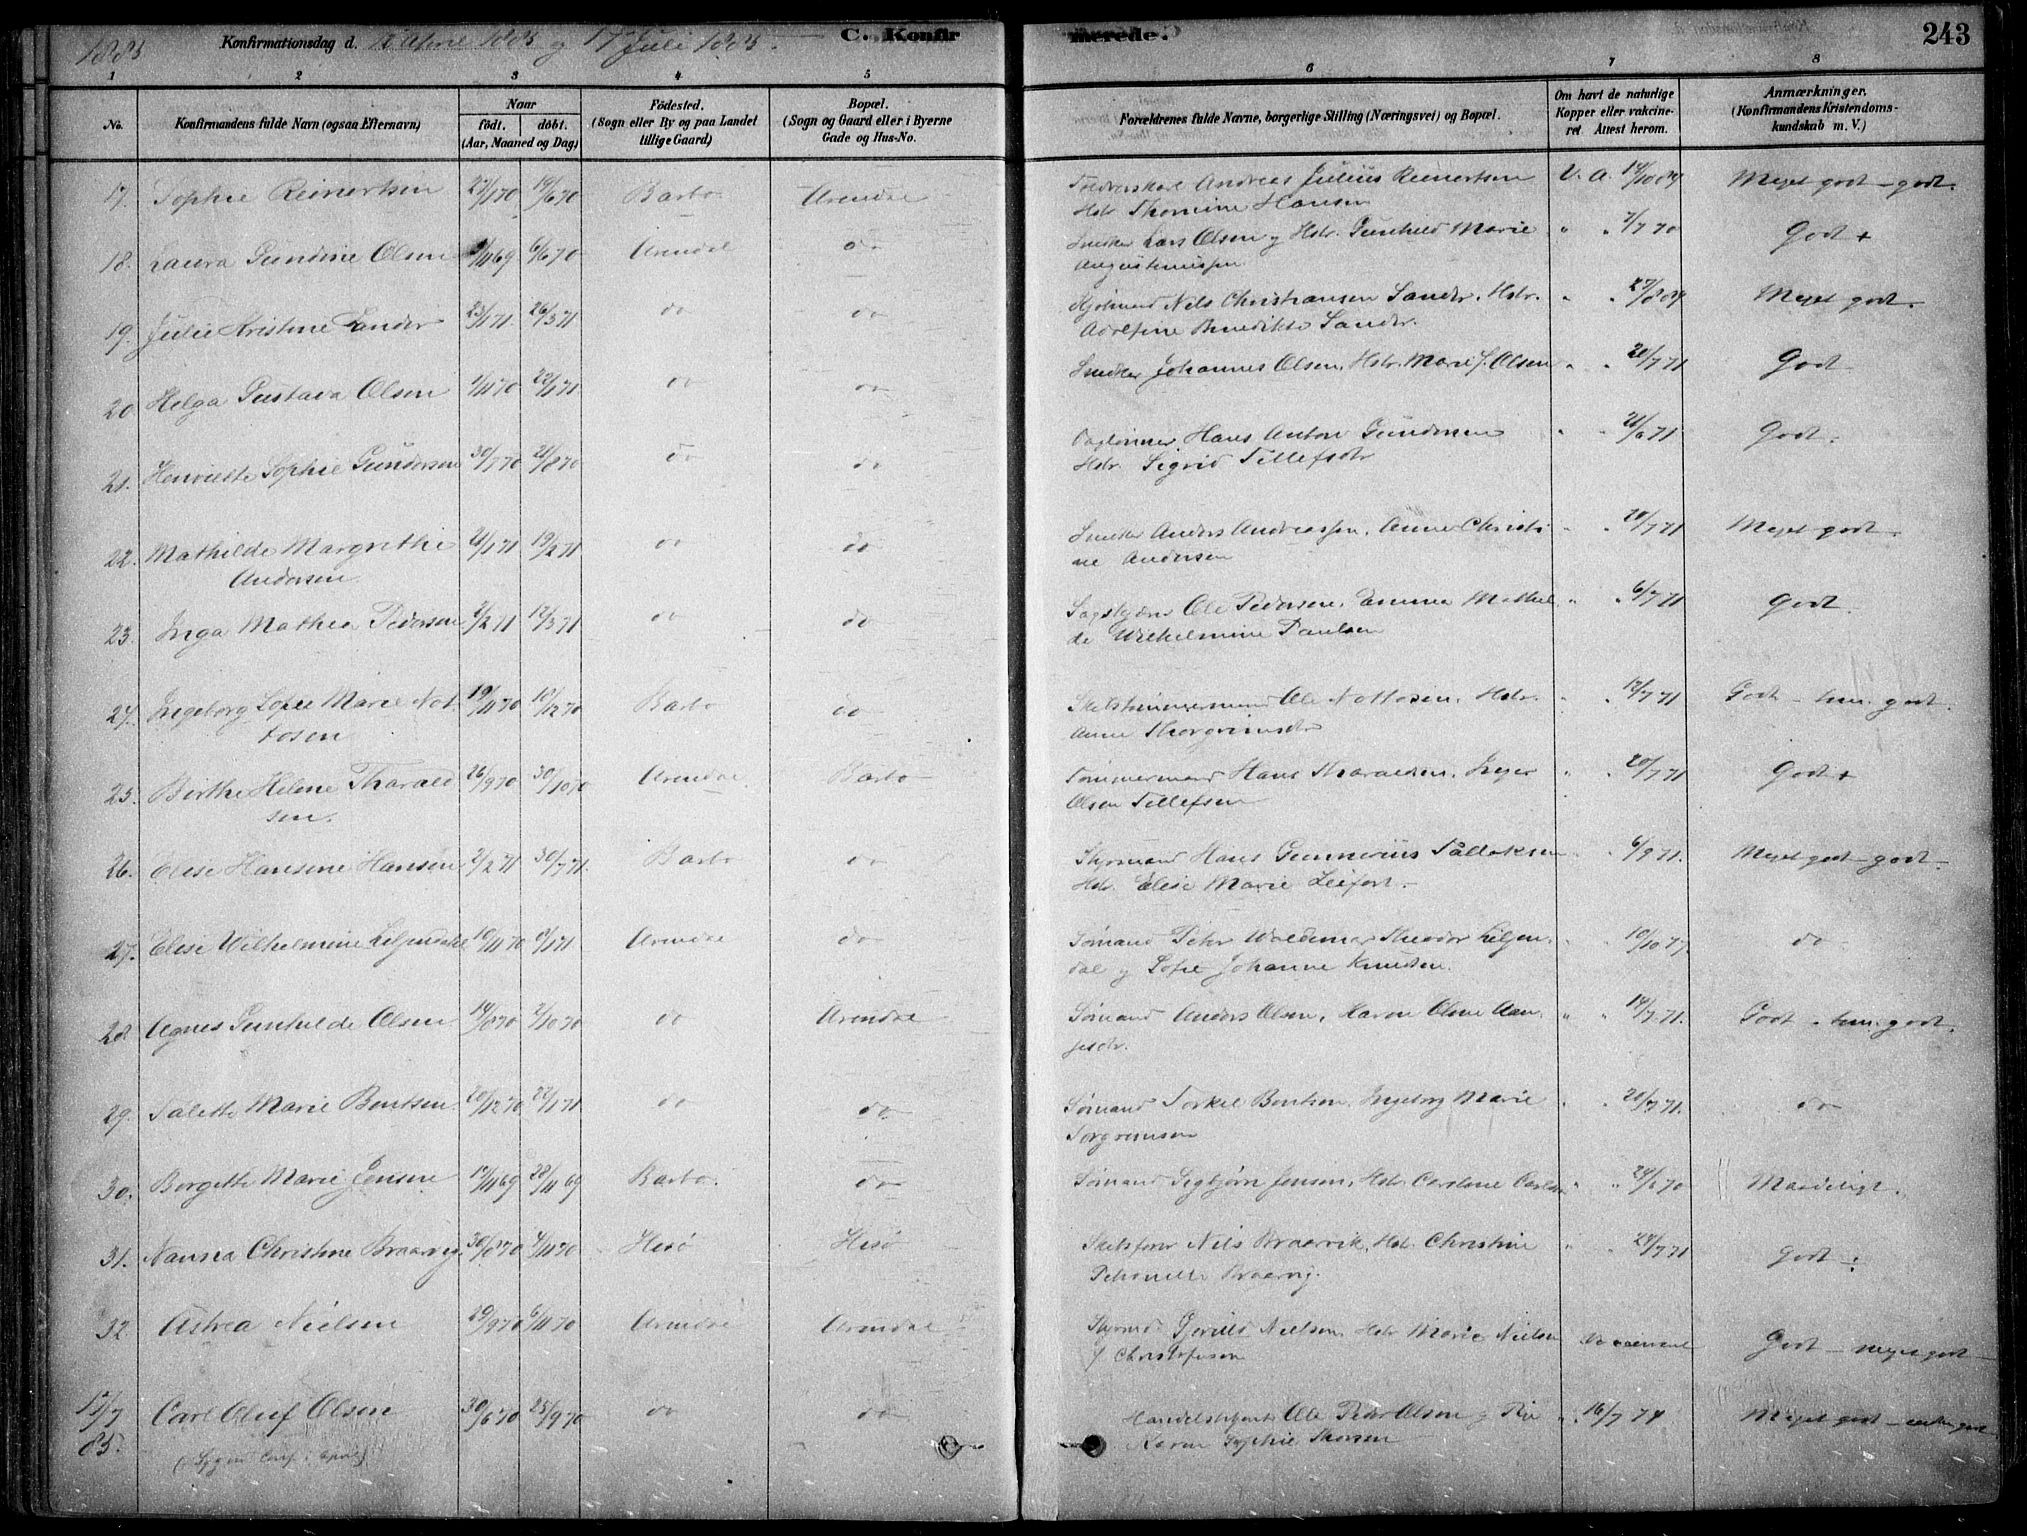 1885 Konfirmationsdag d. April 1885 og 17 Juli 1885. C. Konfirmerede. 243
1 2 3 4 5 6 7 8
No. Konfirmandens fulde Navn (ogsaa Efternavn) Naar født. døbt. (Aar, Maaned og Dag) Fødested. (Sogn eller By og paa Landet tillige Gaard) Bopæl. (Sogn og Gaard eller i Byerne Gade og Hus-No. Forældrenes fulde Navne, borgerlige Stilling (Næringsvei) og Bopæl. Om havt de naturlige Kopper eller vakcineret Attest herom. Anmærkninger. (Konfirmandens Kristendomskundskab m. V.)
17. Sophie Reinertsen 19/6 70 Barbo Arendal Andreas Julius Reinertsen V. A. 14/10 84 Meget godt – godt.
Hstr. Thomine Hansen
18. Laura Gundine Olsen 6/6 70 Arendal do Snedker Lars Olsen og Hstr. Gunhild Marie " " 7/7 70 Godt +
19. Julie Kristine Sander 23/1 71. 26/3 71 do do Nils Christiansen Sander. Hstr. " " 27/8 84 Meget godt.
Adolfine Benedikte Sander.
20 Helga Gustava Olsen 1/11 70 22/1 71 do do Snedker Johannes Olsen, Hstr. Marie J. Olsen " " 20/7 71 Godt
21. Henriette Sophie Gundersen 30/7 70 21/8 70 do do Daglønner Hans Anton Gundersen " " 21/6 71 Godt.
Hstr. Sigrid Tellefsdtr
22. Mathilde Margrethe 4/1 71 19/2 71 do do Snedker Anders Andreassen, Anne Christi- " " 20/7 71 Meget godt.
Andersen ne Andersen
23. Inga Mathea Pedersen 2/2 71 12/3 71 do do Sagskjærer Ole Pedersen, Emma Mathil- " " 6/7 71 Godt.
de Wilhelmine Paulsen
24. Ingeborg Sofie Marie Not- 19/11 70 18/12 70 Barbo do Skibstømmermand Ole Nottosen. Hstr. " " 12/7 71 Godt – tem. godt.
tosen Anne Thorgrimsdtr
25. Birthe Helene Tharald- 26/9 70 30/10 70 Arendal Barbo Tømmermand Hans Tharaldsen, Inger " " 20/7 71 Godt +
sen. Olsen Tellefsen
26. Elise Hansine Hansen 2/2 71 30/7 71. Barbo do Styrmand Hans Gunnerius Tallaksen " " 6/9 71. Meget godt – godt –
Hstr. Elise Marie
27. Elise Wilhelmine Liljendahl 10/11 70 8/1 71 Arendal do Sømand Peter Waldemar Theodor Liljen- " " 10/10 77. do
dal og Sofie Johanne Knudsen.
28. Agnes Gunhilde Olsen 14/8 70 2/10 70 do Arendal Sømand Anders Olsen, Karen Oline Aan- " " 14/7 71. Godt – tem. godt.
29. Talette Marie Bentsen. 20/12 70 22/1 71 do do Sømand Torkel Bentsen. Ingeborg Marie " " 20/7 71. do
Torgrimsen
30. Borgette Marie Jensen 28/11 69 Barbo. do Sømand Sigbjørn Jensen, Hstr. Caroline " " 24/6 70 Maadeligt.
31. Nanna Christine Braarvig. 30/8 70 4/11 70 Hisø Hisø Skibsfører Nils Braarvik, Hstr. Christine " " 24/7 71 Godt ÷
Petronelle Braarvig.
32. Astrea Nielsen 29/9 70 6/11 70 Arendal Arendal Styrmd. Nielsen, Hstr. Marie Nielsen Godt – meget godt –
f. Christofersen
17/7 85. Carl Oluf Olsen 30/6 70 25/9 70 do do Ole Peter Olsen og " " 16/7 74 Meget godt –
(Syg en Conf. i April) Karen Sophie Thorsen